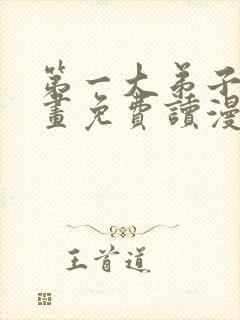 第一大弟子
畫免費讀漫
王首道